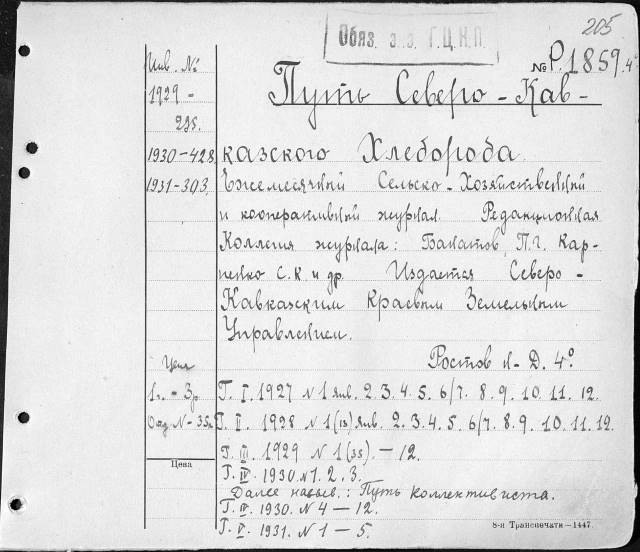 205
Обяз. э.з. Г.Ц.К.П.
№ Р.1859.4°
Инв. №
1929 –
295.
1930–428.
1931–303.
Путь Северо – Кав –
казского Хлебороба.
Ежемесячный Сельско-Хозяйственный
и кооперативный журнал. Редакционная
Коллегия журнала: Бахатов П.Г. Кар-
пенко С.К. и др. Издается Северо –
Кавказским Краевым Земельным
Управлением.
Ростов н-Д. 4°.
Цена
1г. – 3р.
Отд № – 35к.
Г. I. 1927 №1 янв. 2. 3. 4. 5. 6/7. 8. 9. 10. 11. 12.
Г. II. 1928 №1 (13) янв. 2. 3. 4. 5. 6/7. 8. 9. 10. 11. 12.
Г. III. 1929 №1 (35). – 12.
Г. IV. 1930. №1. 2. 3.
Далее назыв.: Путь коллективиста.
Г. IV. 1930. №4 – 12.
Г. V. 1931. №1 – 5.
Цена
8-я Транспечати—1447.